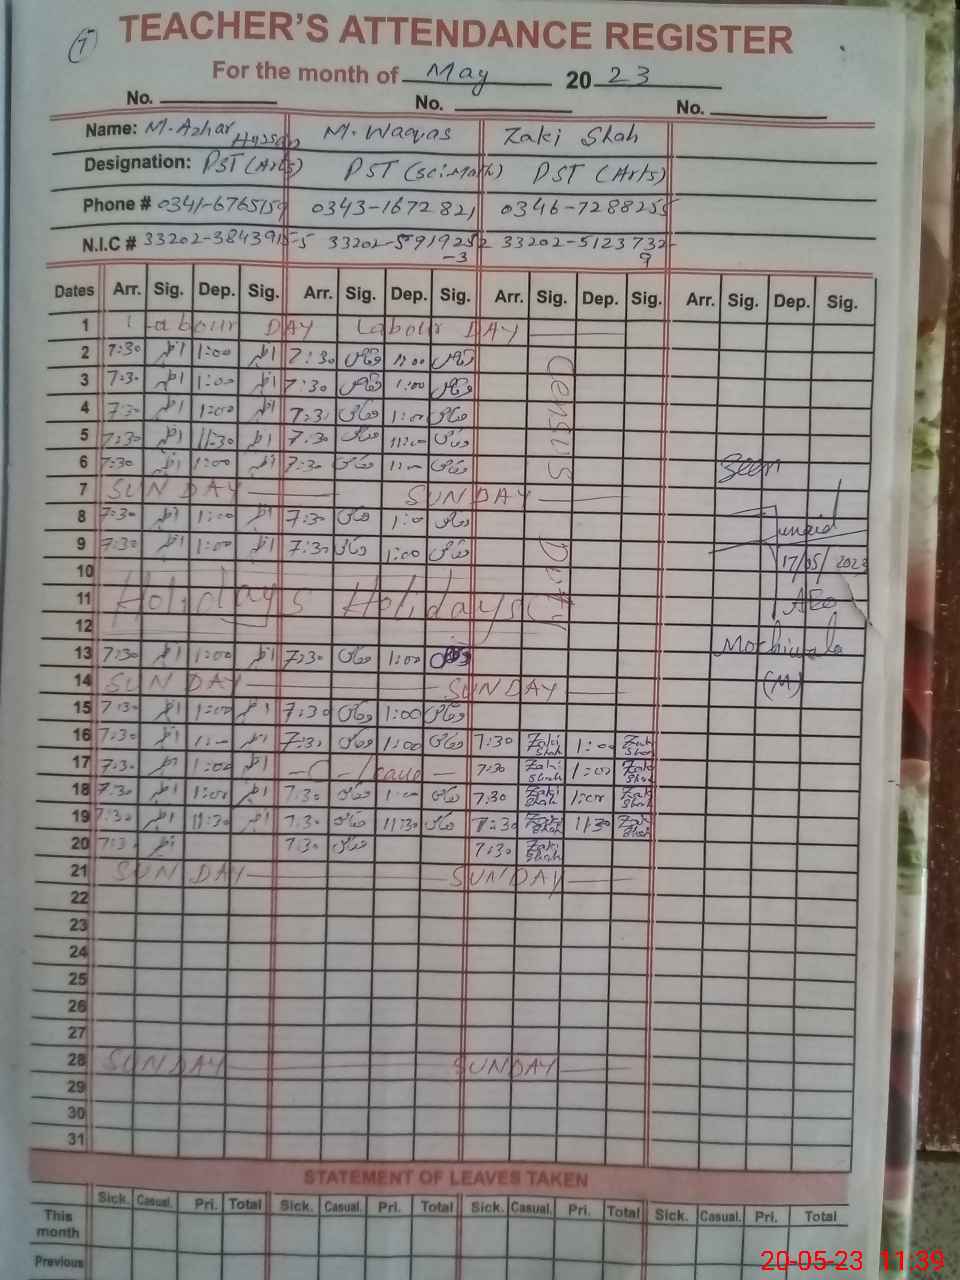 TEACHER'S ATTENDANCE REGISTER
For the month of May 20 23
No. No. No.
Name: M. Azhar Hussan M. Waqas Zaki Shah
Designation: PST (Arts) PST (Sci.Math) PST (Arts)
Phone # 0341-6765159 0343-1672821 0346-7288255
N.I.C # 33202-3843915-5 33202-5919252-3 33202-5123732-9
Dates Arr. Sig. Dep. Sig. Arr. Sig. Dep. Sig. Arr. Sig. Dep. Sig. Arr. Sig. Dep. Sig.
1 Labour DAY Labour DAY
Census Duty
2 7:30 اظہر 1:00 اظہر 7:30 وقاص 1:00 وقاص
3 7:30 اظہر 1:00 اظہر 7:30 وقاص 1:00 وقاص
4 7:30 اظہر 1:00 اظہر 7:30 وقاص 1:00 وقاص
5 7:30 اظہر 11:30 اظہر 7:30 وقاص 11:00 وقاص
6 7:30 اظہر 1:00 اظہر 7:30 وقاص 1:00 وقاص
Seen
7 SUNDAY SUNDAY
8 7:30 اظہر 1:00 اظہر 7:30 وقاص 1:00 وقاص
Junaid
9 7:30 اظہر 1:00 اظہر 7:30 وقاص 1:00 وقاص
17/05/2023
10
11 Holidays Holidays
AEO
12
Mochiwala
13 7:30 اظہر 1:00 اظہر 7:30 وقاص 1:00
(M)
14 SUNDAY SUNDAY
15 7:30 اظہر 1:00 اظہر 7:30 وقاص 1:00 وقاص
16 7:30 اظہر 1:00 اظہر 7:30 وقاص 1:00 وقاص 7:30 Zaki Shah 1:00 Zaki Shah
17 7:30 اظہر 1:00 اظہر -C-leave- 7:30 Zaki Shah 1:00 Zaki Shah
18 7:30 اظہر 1:00 اظہر 7:30 وقاص 1:00 وقاص 7:30 Zaki Shah 1:00 Zaki Shah
19 7:30 اظہر 11:30 اظہر 7:30 وقاص 11:30 وقاص 7:30 Zaki Shah 11:30 Zaki Shah
20 7:30 اظہر 7:30 وقاص 7:30 Zaki Shah
21 SUNDAY SUNDAY
22
23
24
25
26
27
28 SUNDAY SUNDAY
29
30
31
STATEMENT OF LEAVES TAKEN
Sick. Casual. Pri. Total Sick. Casual. Pri. Total Sick. Casual. Pri. Total Sick. Casual. Pri. Total
This month
Previous
20-05-23 11:39